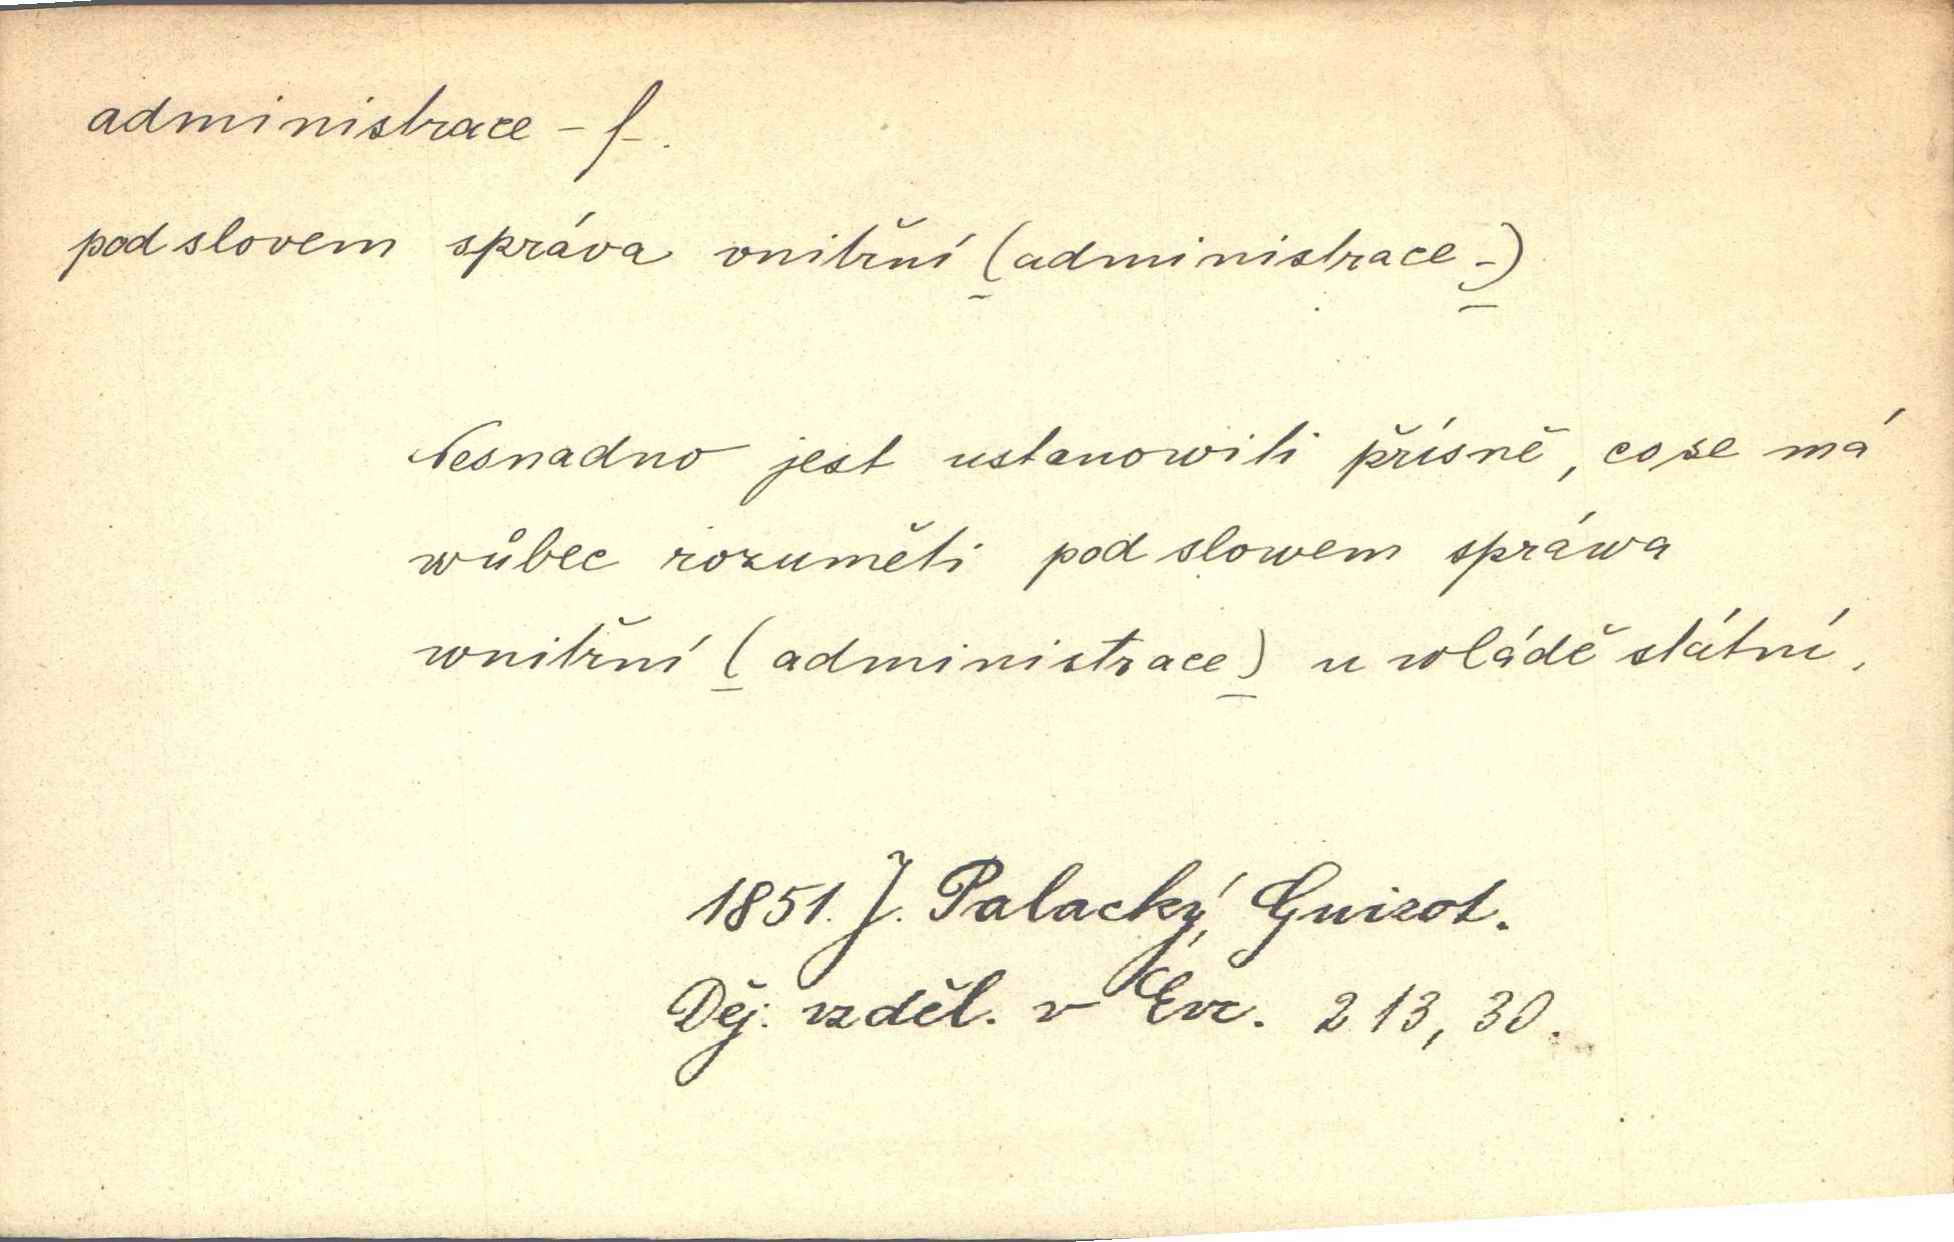 administrace - f.
pod slovem správa vnitřní (administrace -)
Nesnadno jest ustanowiti přísně, co se má
wůbec rozuměti pod slowem spráwa
wnitřní (administrace) u wládě státní.
1851. J. Palacký, Guizot.
Děj. vzděl. v Evr. 213, 30.